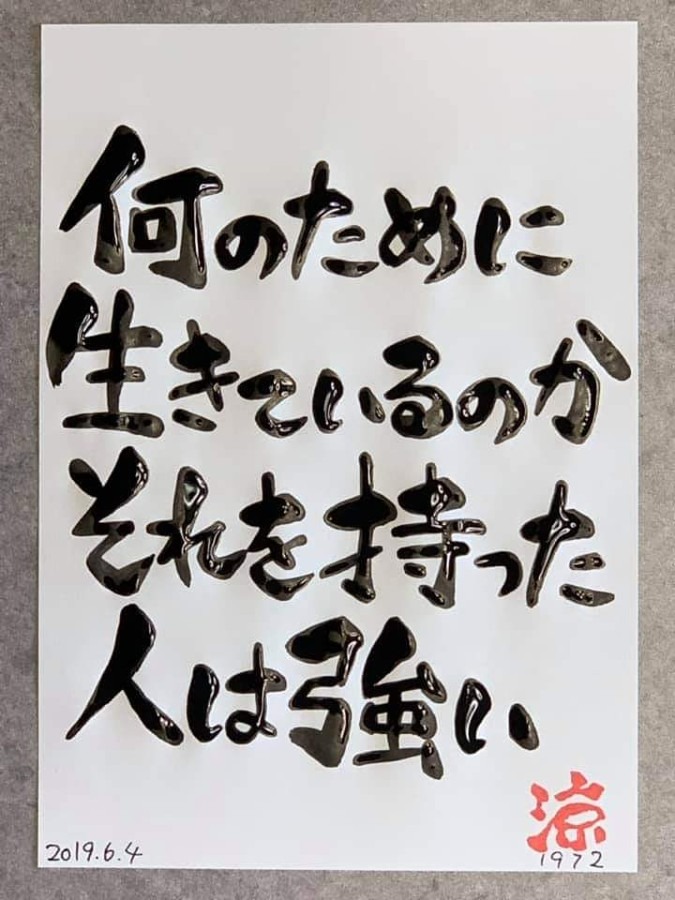 何のために
生きているのか
それを持った
人は強い
涼
2019.6.4
1972